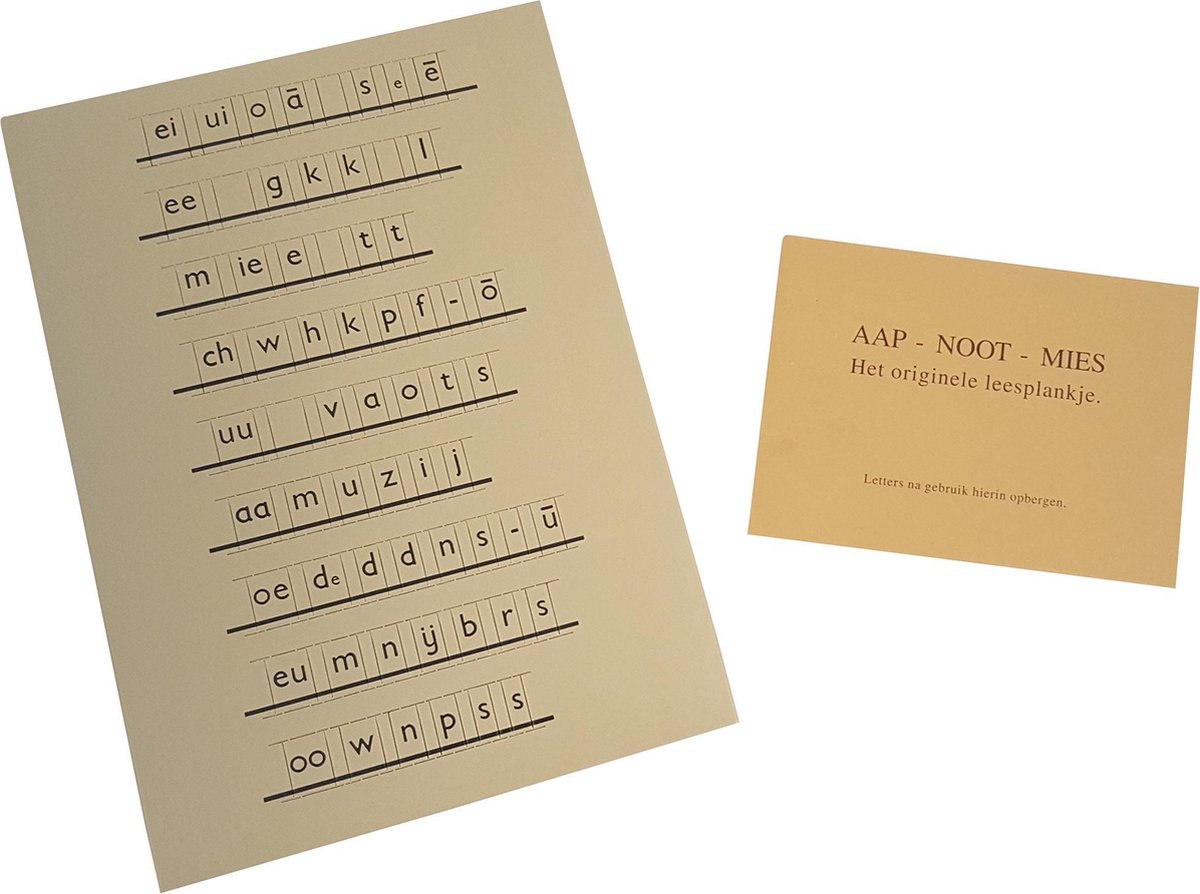 ei ui o ā s e ē
ee g k k l
m ie e t t
ch w h k p f - ō
uu v a o t s
aa m u z i j
oe de d d n s - ū
eu m n ij b r s
oo w n p s s
AAP - NOOT - MIES
Het originele leesplankje.
Letters na gebruik hierin opbergen.